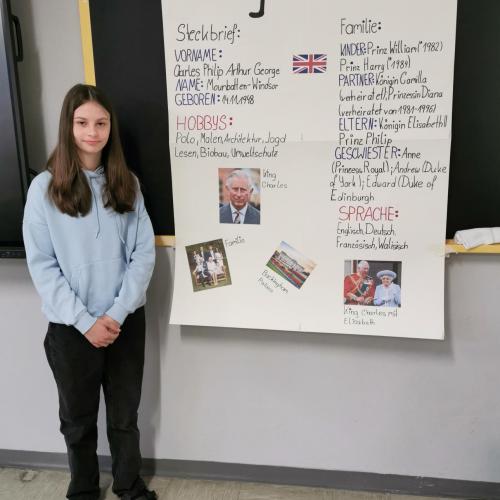 Steckbrief:
VORNAME:
Charles Philip Arthur George
NAME: Mountbatten-Windsor
GEBOREN: 14.11.1948
HOBBYS:
Polo, Malen, Architektur, Jagd
Lesen, Biobau, Umweltschutz
King
Charles
Familie
Buckingham
Palace
Familie:
KINDER: Prinz William(*1982)
Prinz Harry(*1984)
PARTNER: Königin Camilla
(verheiratet); Prinzessin Diana
(verheiratet von 1981-1996)
ELTERN: Königin Elisabeth II
Prinz Philip
GESCWIESTER: Anne
(Princess Royal); Andrew (Duke
of York); Edward (Duke of
Edinburgh
SPRACHE:
Englisch, Deutsch,
Französisch, Walisisch
King Charles mit
Elisabeth